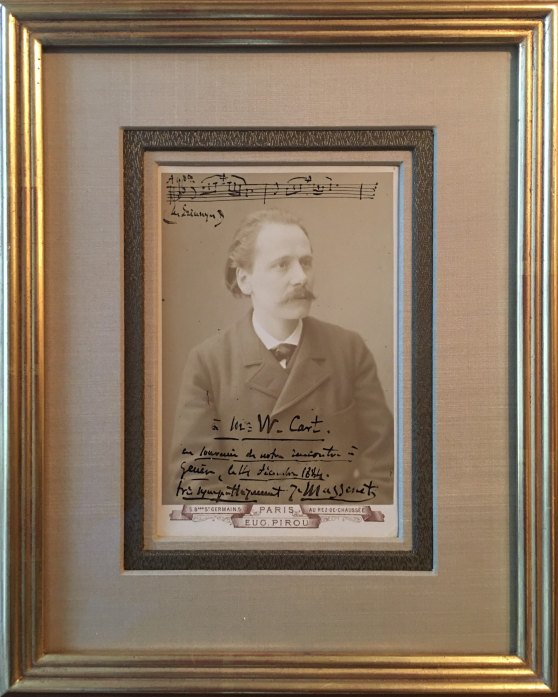 à Mr W. Cart.
en souvenir de notre rencontre à
Genève, le 14 décembre 1884.
très sympathiquement J. Massenet
5.Bard St GERMAIN.5 PARIS AU REZ-DE-CHAUSSÉE
EUG. PIROU